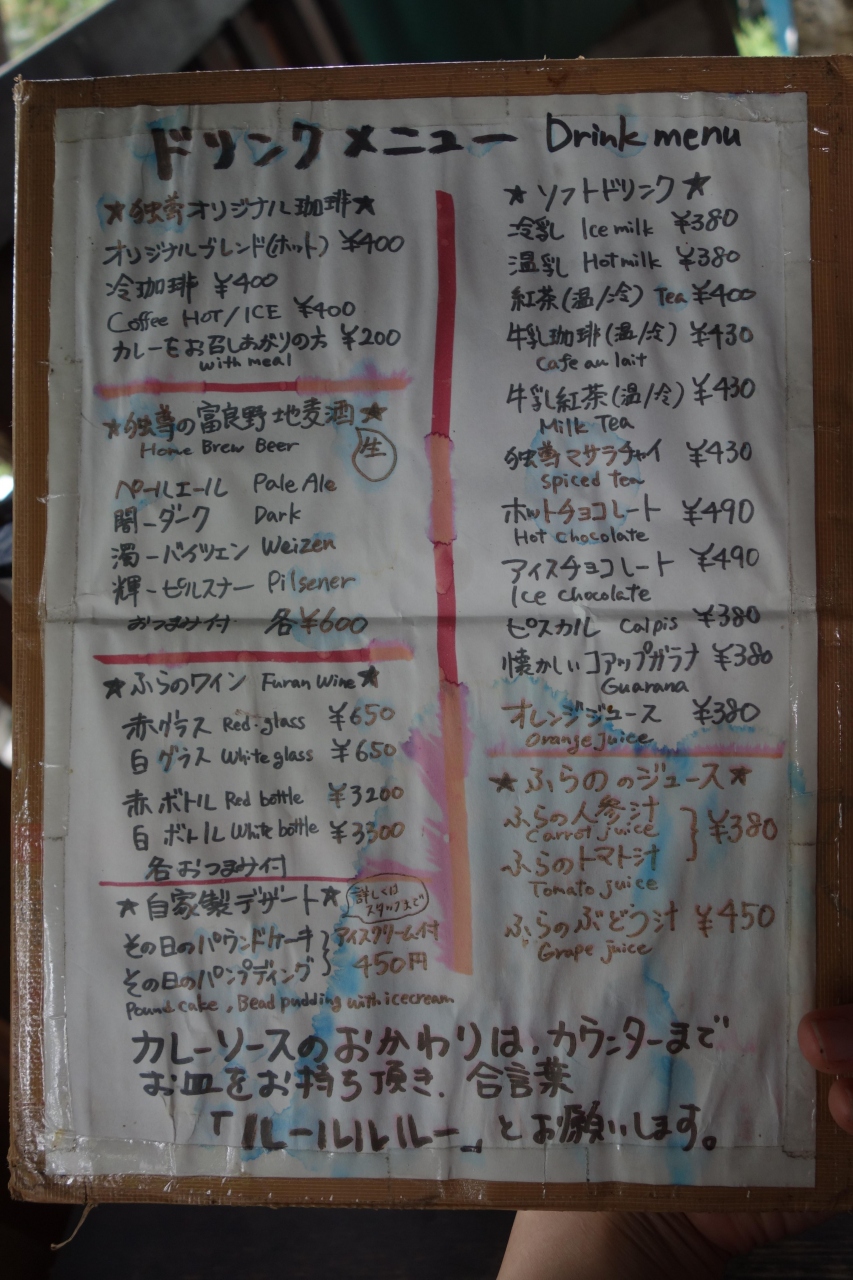 ドリンクメニュー Drink menu
★独尊オリジナル珈琲★
オリジナルブレンド(ホット) ¥400
冷珈琲 ¥400
Coffee HOT/ICE ¥400
カレーをお召しあがりの方 ¥200
with meal
★独尊の富良野地麦酒★
Home Brew Beer
生
ペールエール Pale Ale
闇-ダーク Dark
濁-バイツェン Weizen
輝-ピルスナー Pilsener
おつまみ付 各¥600
★ふらのワイン Furan Wine★
赤グラス Red glass ¥650
白グラス White glass ¥650
赤ボトル Red bottle ¥3200
白ボトル White bottle ¥3300
各おつまみ付
★自家製デザート★
詳しくは
スタッフまで
その日のパウンドケーキ
その日のパンプディング
アイスクリーム付
450円
Pound cake, Bead pudding with icecream
★ソフトドリンク★
冷乳 Ice milk ¥380
温乳 Hot milk ¥380
紅茶(温/冷) Tea ¥400
牛乳珈琲(温/冷) ¥430
Cafe au lait
牛乳紅茶(温/冷) ¥430
Milk Tea
独尊マサラチャイ ¥430
Spiced tea
ホットチョコレート ¥490
Hot chocolate
アイスチョコレート ¥490
Ice chocolate
ピスカル Calpis ¥380
懐かしいコアップガラナ ¥380
Guarana
オレンジジュース ¥380
Orange juice
★ふらののジュース★
ふらの人参汁
Carrot juice
¥380
ふらのトマト汁
Tomato juice
ふらのぶどう汁 ¥450
Grape juice
カレーソースのおかわりは、カウンターまで
お皿をお持ち頂き、合言葉
「ルールルルー」とお願いします。